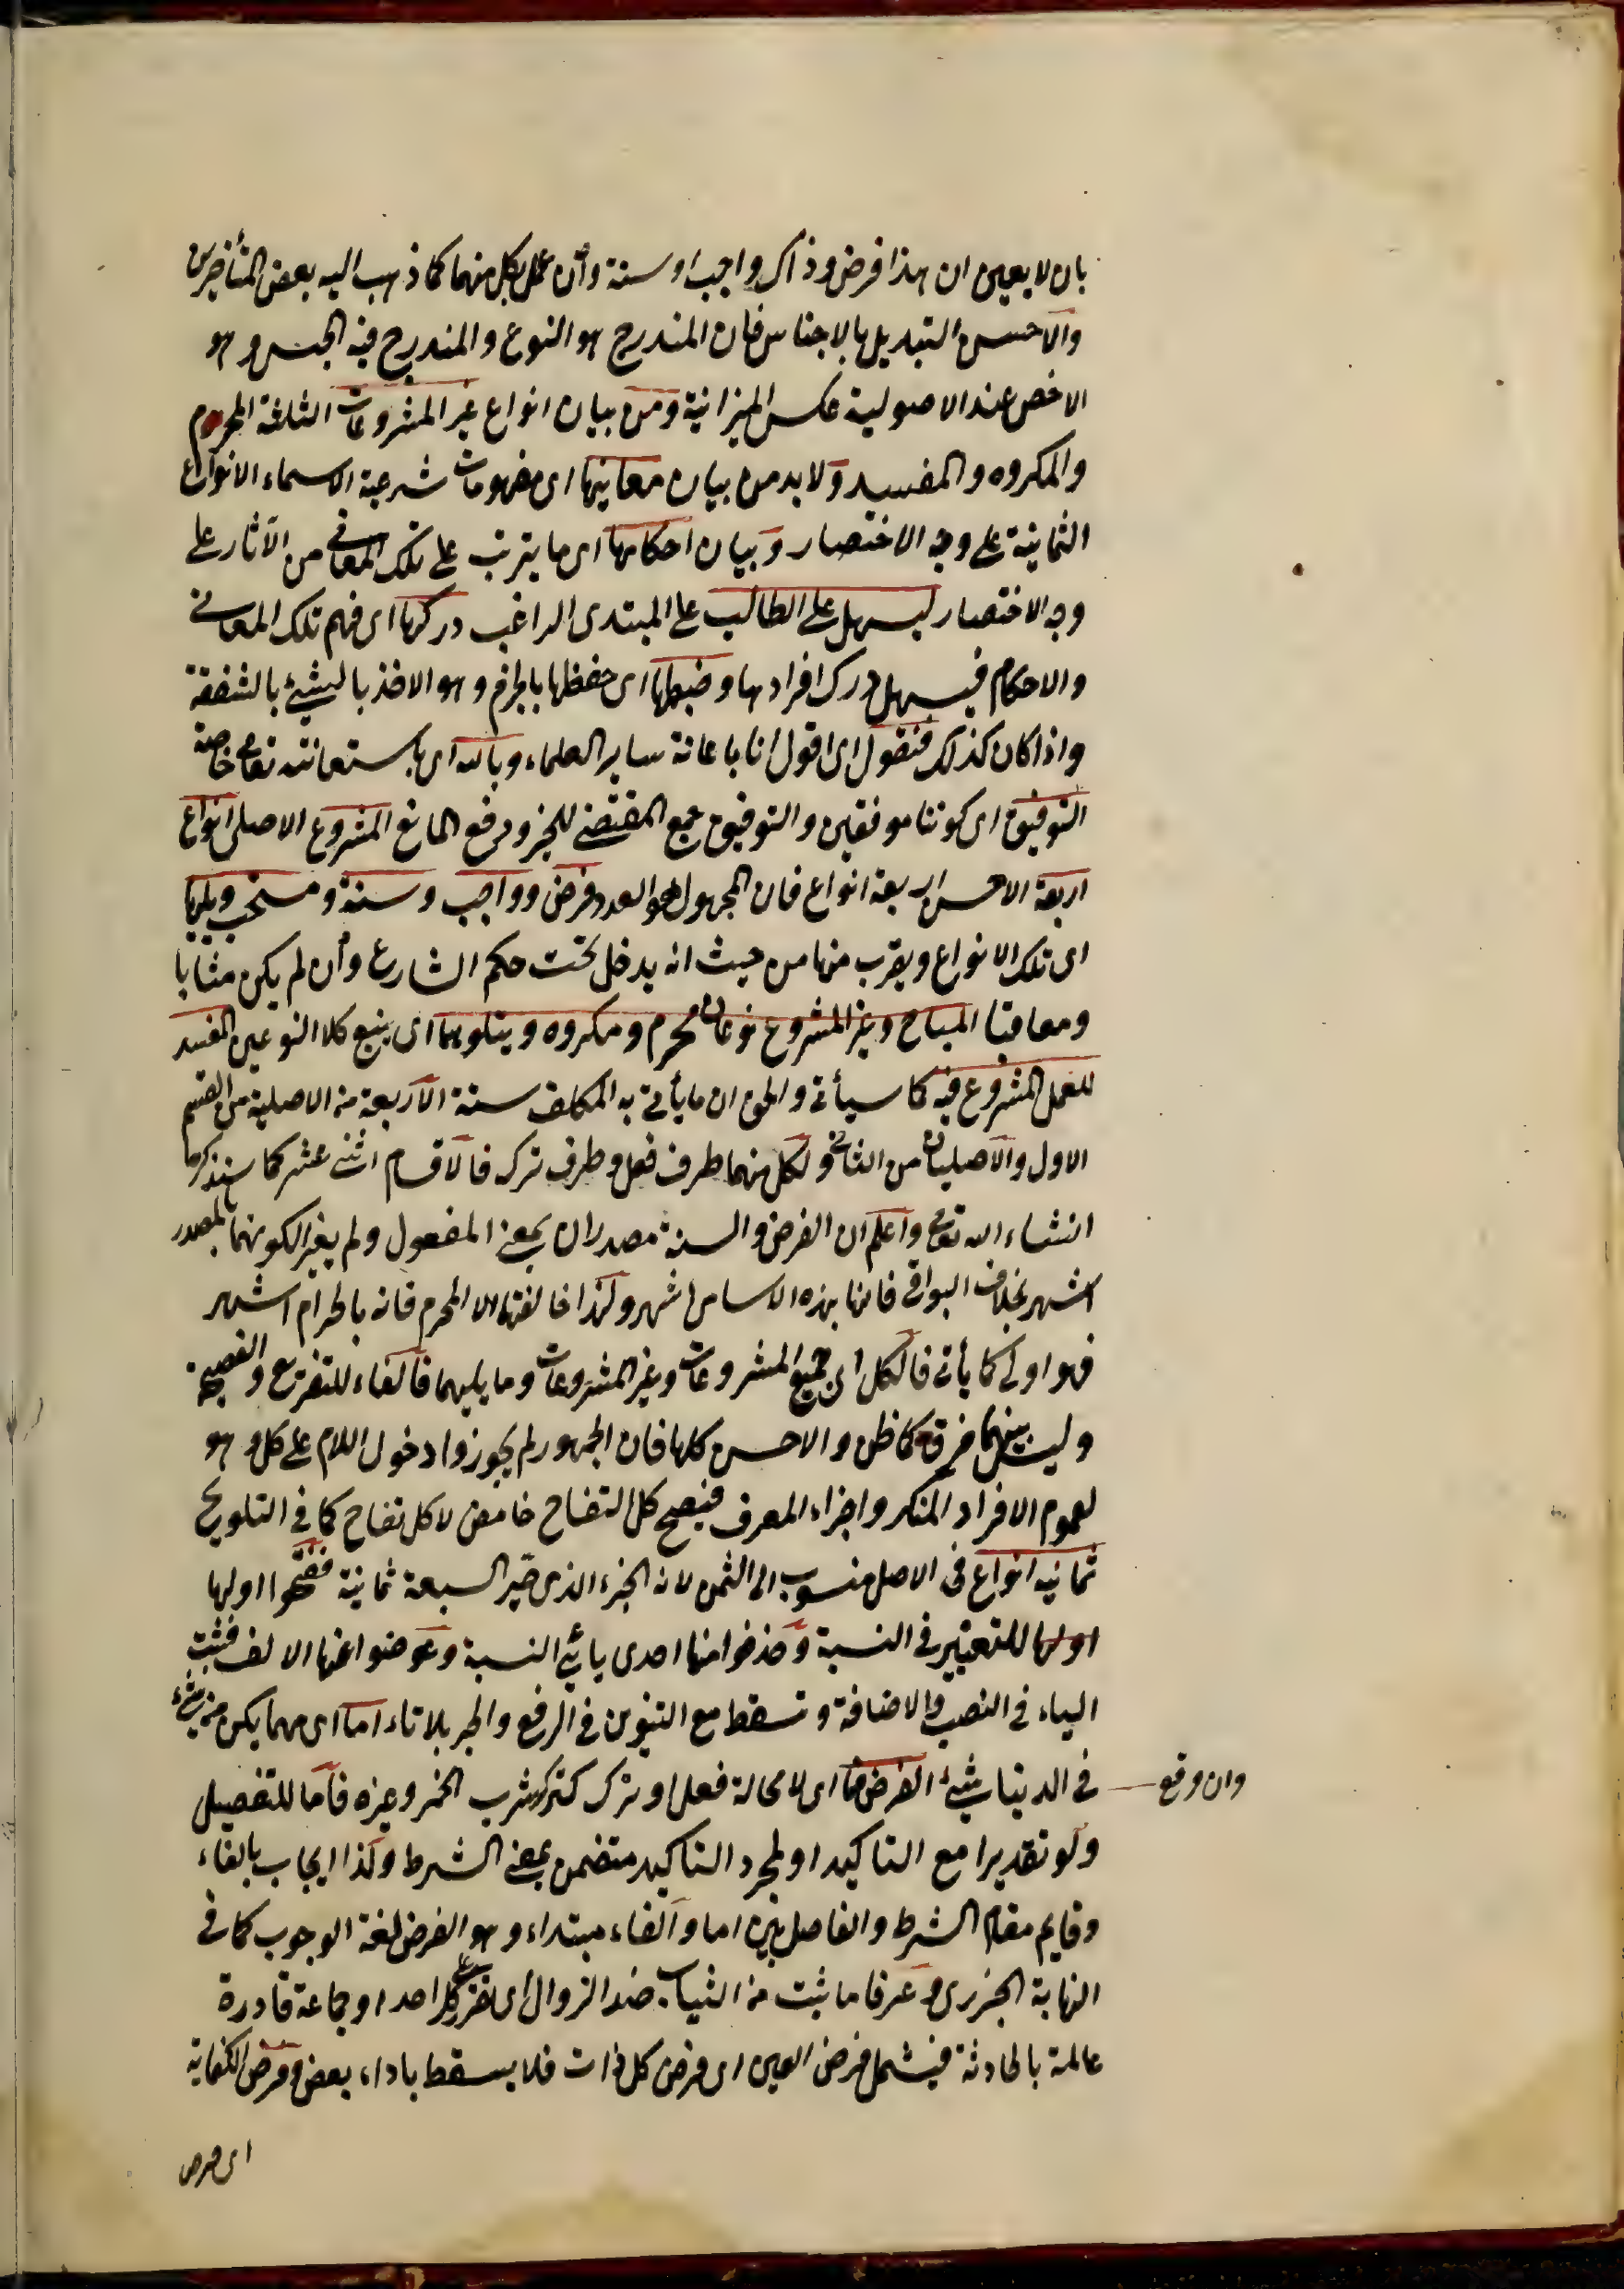 بان لا يعين ان هذا فرض وذاك واجب او سنة وان عمل بكل منهما كما ذهب اليه بعض المتأخرين
والاحسن التبديل بالاجناس فان المندرج هو النوع والمندرج فيه الجنس وهو
الاخص عند الاصولية عكس الميزانية ومن بيان انواع غير المشروعات الثلثة المحرم
والمكروه والمفسد ولابد من بيان معانيها اى مفهومات شرعية لاسماء الانواع
الثمانية على وجه الاختصار وبيان احكامها اى ما يترتب على تلك المعانى من الآثار على
وجه الاختصار ليسهل على الطالب على المبتدى الراغب دركها اى فهم تلك المعانى
والاحكام فيسهل درك افرادها وضبطها اى حفظها بالجزم وهو الاخذ بالشئ بالشفقة
واذا كان كذلك فنقول اى اقول انا باعانة ساير العلماء وبالله اى باستعانته تعالى خاصة
التوفيق اى كوننا موفقين والتوفيق جمع المقتضى للخير ورفع المانع المشروع الاصلى انواع
اربعة الاحسن اربعة انواع فان المجهول هو العدد فرض وواجب وسنة ومستحب ويليها
اى تلك الانواع ويقرب منها من حيث انه يدخل تحت حكم الشارع وان لم يكن مثابا
ومعاقبا المباح وغير المشروع نوعان محرم ومكروه ويتلوهما اى يتبع كلا النوعين المفسد
للعمل المشروع فيه كما سيأتى والحق ان ما يأتى به المكلف ستة الاربعة من الاصلية من القسم
الاول والاصليان من الثانى ولكل منهما طرف فعل وطرف ترك فالاقسام اثنى عشر كما سنذكرها
انشاء الله تعالى واعلم ان الفرض والسنة مصدران بمعنى المفعول ولم يغير الكونهما بالمصدر
اشهر بخلاف البواقى فانها بهذه الاسامى اشهر ولهذا خالفتها الا المحرم فانه بالحرام اشهر
فهو اولى كما يأتى فالكل اى جميع المشروعات وغير المشروعات وما يليهما فالفاء للتفريع والفصيحة
وليس بينهما فرق كما ظن والاحسن كلها فان الجمهور لم يجوزوا دخول اللام على كل وهو
لعموم الافراد المنكر واجزاء المعرف فيصح كل التفاح حامض لا كل تفاح كما فى التلويح
ثمانية انواع فى الاصل منسوب الى الثمن لانه الجزء الذى صير السبعة ثمانية ففتحوا اولها
اولها للتغيير فى النسبة وحذفوا منها احدى يائى النسبة وعوضوا عنها الالف فثبت
الياء فى النصب والاضافة وتسقط مع التنوين فى الرفع والجر بلا تاء اما اى مهما يكن من شئ
فى الدنيا شئ الفرض فما اى لا محالة فعل او ترك كترك شرب الخمر وغيره فاما للتفصيل
وان وقع
ولو تقديرا مع التاكيد او لمجرد التاكيد متضمن بمعنى الشرط ولذا ايجاب بالفاء
وقايم مقام الشرط والفاصل بين اما والفاء مبتداء وهو الفرض لغة الوجوب كما فى
النهاية الجزرى وعرفا ما ثبت من الثبات ضد الزوال اى تقرر على كل احد او جماعة قادرة
عالمة بالحادثة فيشمل فرض العين اى فرض كل ذات فلا يسقط باداء بعض وفرض الكفاية
اى فرض